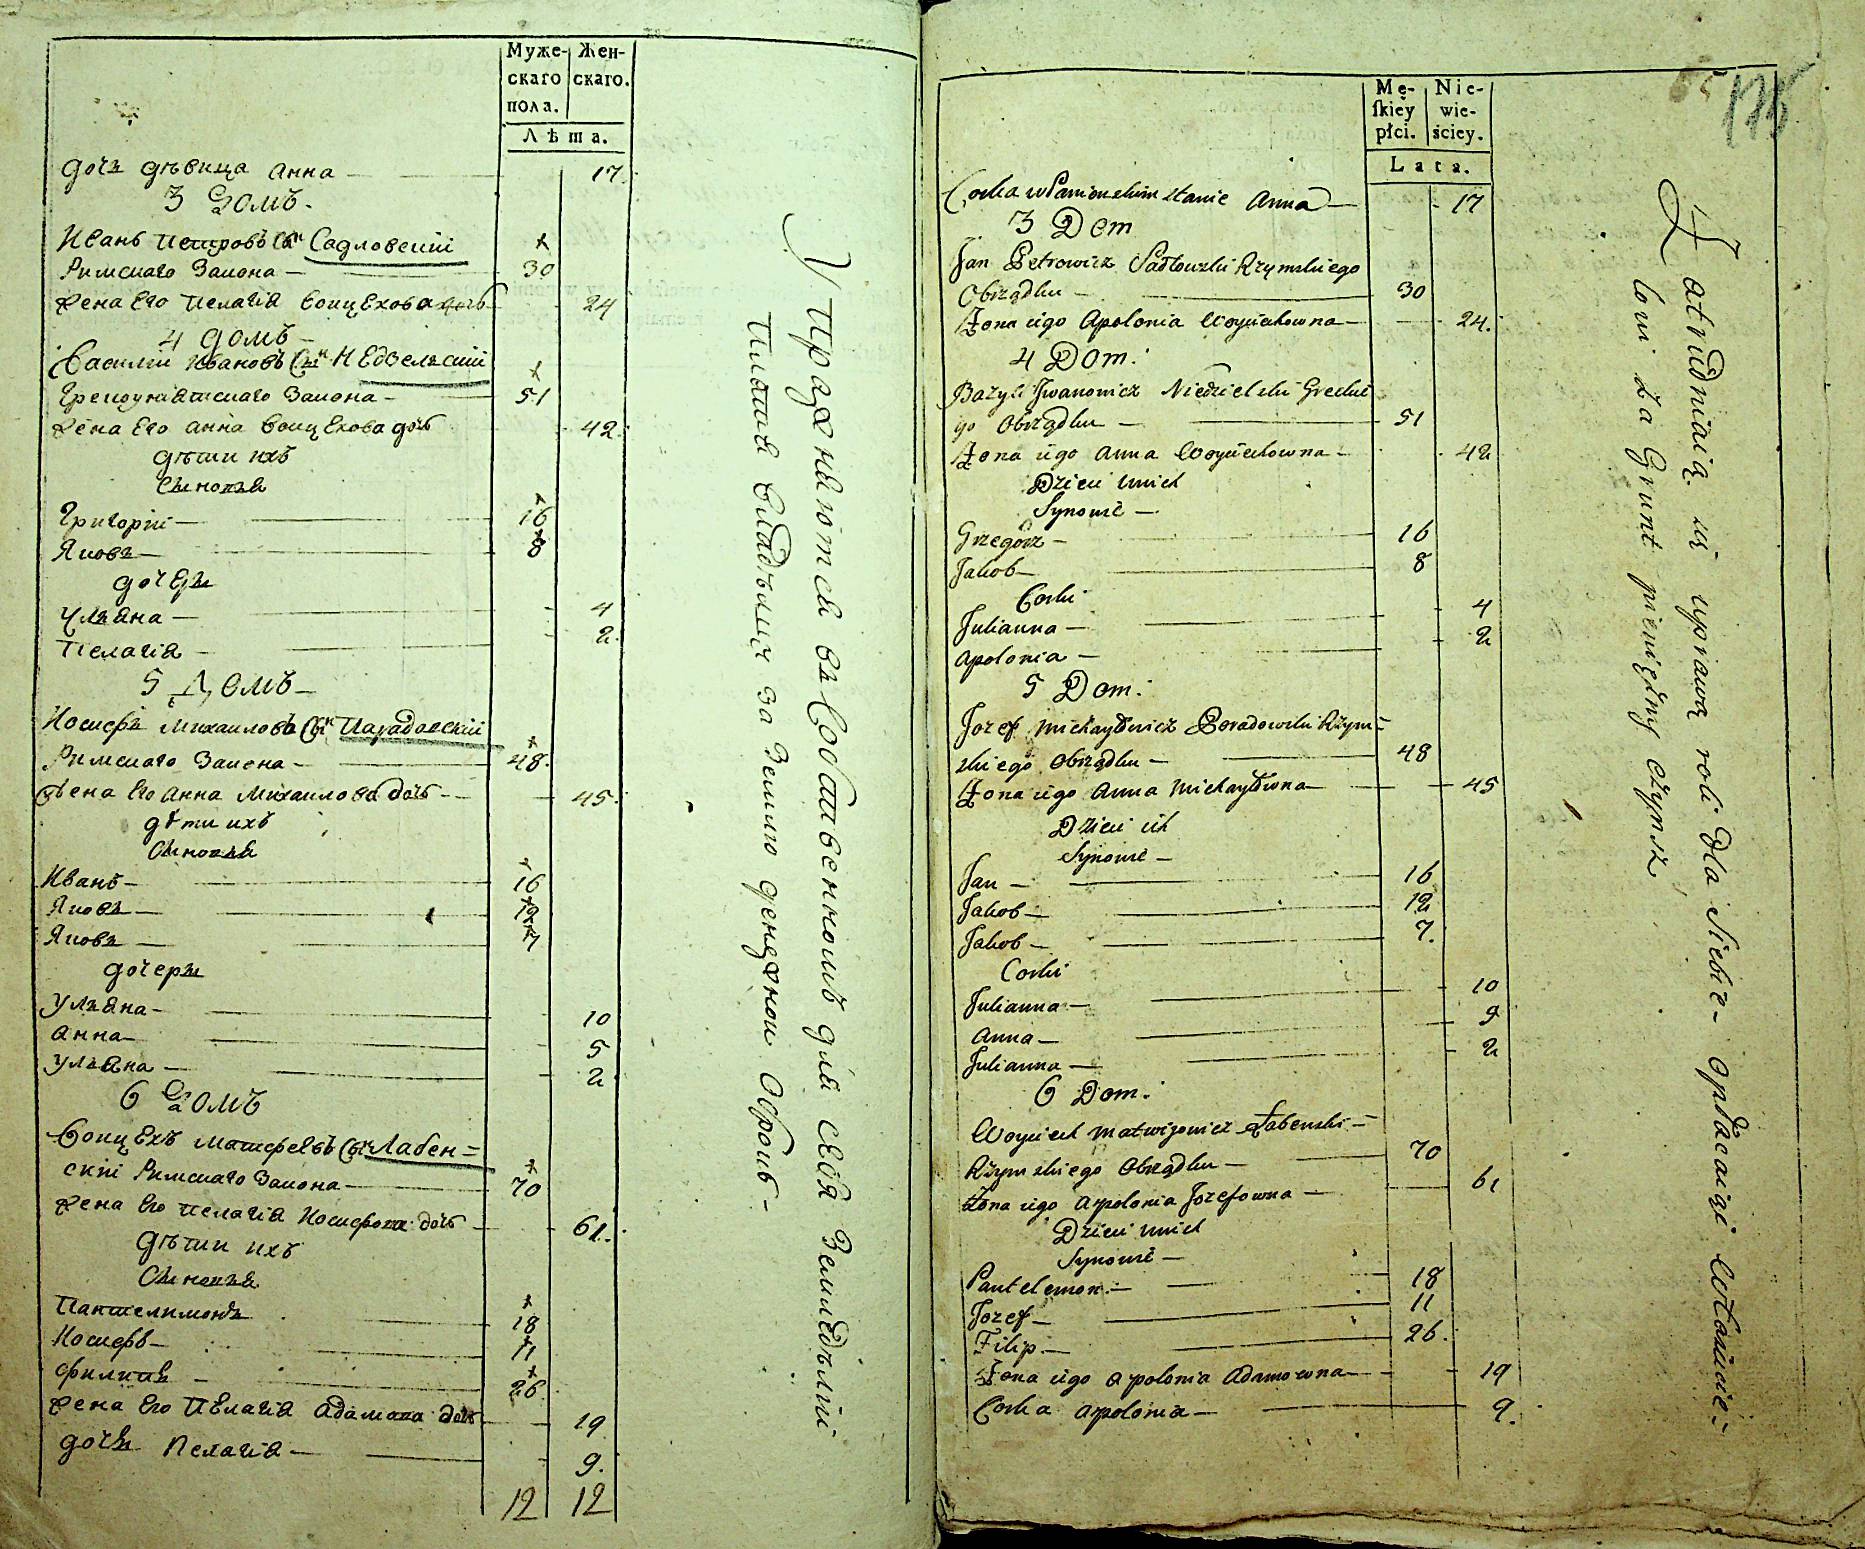 Муже- Жен-
скаго скаго.
пола.
Лѣта.
дочь дѣвица Анна — 17.
3 Домъ.
Иванъ Петровъ Сынъ Садловскiй
Римскаго Закона — 30
Жена Его Пелагiя Войцехова дочь 24
4 домъ —
Василiй Ивановъ Сынъ Недзельскiй
Грекоунiатскаго Закона — 51
Жена Его Анна Войцехова дочь 42.
дѣти ихъ
Сыновья
Григорiй — 16
Яковъ — 8
дочери
Ульяна — 4
Пелагiя — 2.
5 Домъ —
Иосифъ Михайловъ Сынъ Парадовскiй
Римскаго Закона — 48.
Жена Его Анна Михайлова дочь — 45.
дѣти ихъ
Сыновья
Иванъ — 16
Яковъ — 12
Яковъ — 7
дочери
Ульяна — 10
Анна — 5
Ульяна — 2
6 Домъ
Войцехъ Матфеевъ Сынъ Лабен=
скiй Римскаго Закона — 70
Жена Его Пелагiя Иосифова дочь — 61.
Дѣти ихъ
Сыновья
Пантелимонъ 18
Иосифъ — 11
Филипъ — 26.
Жена Его Пелагiя Адамова дочь 19
дочь Пелагiя — 9.
12 12
Упражняются въ Собственномъ для себя Земледѣлiи
Платя Владѣльцу за Землю денежной Оброкъ —
175
Mę- Nie-
skiey wie-
płci. ściey.
Lata.
Corka w Panienskim stanie Anna — 17
3 Dom
Jan Petrowicz Sadłowski Rzymskiego
Obrządku — 30
Zona iego Apolonia Woyciechowna — 24.
4 Dom.
Bazyli Jwanowicz Niedzielski Greckie
go Obrządku — 51
Zona iego Anna Woyciechowna — 42
Dzieci unich
Synowie —
Grzegorz — 16
Jakob — 8
Corki
Julianna — 4
Apolonia — 2
5 Dom.
Jozef Michayłowicz Poradowski Rzym=
skiego Obrządku — 48
Zona iego Anna Michayłowna — 45
Dzieci ich
Synowie —
Jan — 16
Jakob — 12
Jakob — 7.
Corki
Julianna — 10
Anna — 5
Julianna — 2
6 Dom.
Woyciech Matwijowicz Łabenski =
Rzymskiego Obrządku — 70
Zona iego Apolonia Jozefowna — 61
Dzieci unich
Synowie —
Pantelemon — 18
Jozef — 11
Filip — 26.
Zona iego Apolonia Adamowna — 19
Corka Apolonia — 9.
Zatrudniaią się uprawą roli dla Siebie opłacaiąc
za Grunt pieniężny czynsz